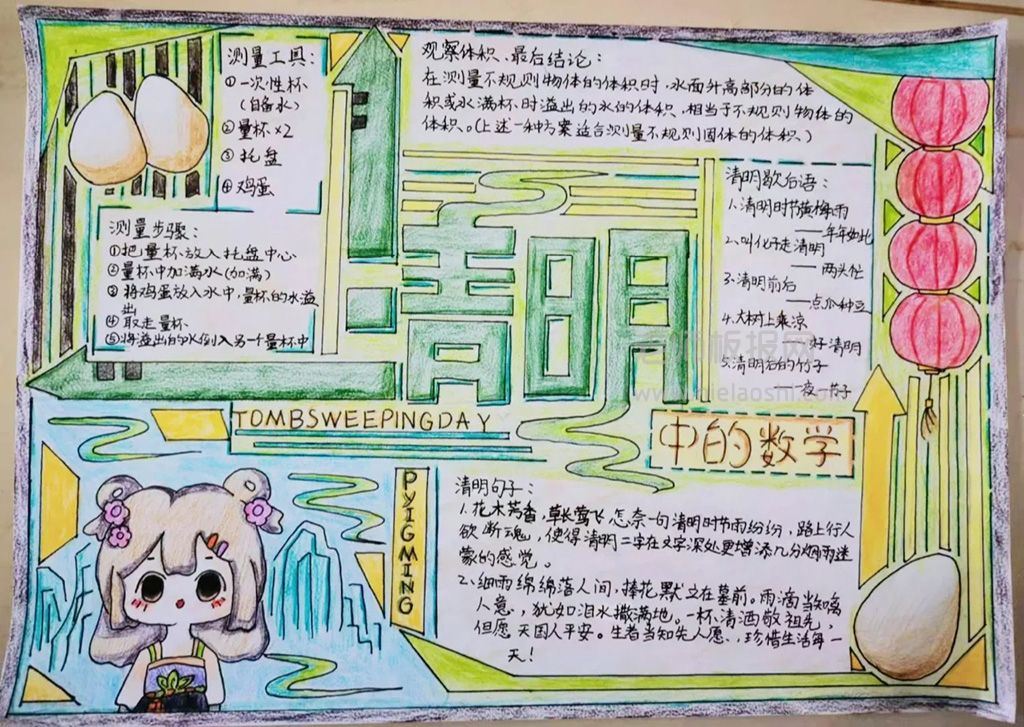 测量工具:
①一次性杯
(自备水)
②量杯×2
③托盘
④鸡蛋
测量步骤:
①把量杯放入托盘中心
②量杯中加满水(加满)
③将鸡蛋放入水中,量杯的水溢
出
④取走量杯
⑤将溢出的水倒入另一个量杯中
观察体积、最后结论:
在测量不规则物体的体积时,水面升高部分的体
积或水满杯时溢出的水的体积,相当于不规则物体的
体积。(上述一种方案适合测量不规则固体的体积、)
清明歇后语:
1、清明时节黄梅雨
——年年如此
2、叫化子走清明
——两头忙
3、清明前后
——点瓜种豆
4、大树上乘凉
好清明
5、清明后的竹子
一夜一节子
清明
TOMBSWEEPINGDAY
中的数学
PYIGMING
清明句子:
1、花木芳香,草长莺飞怎奈一句清明时节雨纷纷,路上行人
欲断魂,使得清明二字在文字深处更增添几分烟雨迷
蒙的感觉。
2、细雨绵绵落人间,捧花默立在墓前。雨滴当知
人意,犹如泪水撒满地。一杯清酒敬祖先,
但愿天国人平安。生者当知先人愿,珍惜生活每一
天!
老师板报网